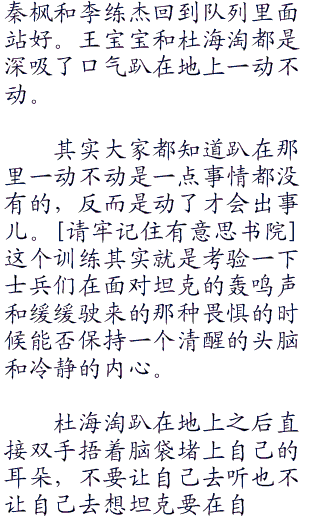 秦枫和李练杰回到队列里面
站好。王宝宝和杜海淘都是
深吸了口气趴在地上一动不
动。
其实大家都知道趴在那
里一动不动是一点事情都没
有的，反而是动了才会出事
儿。[请牢记住有意思书院]
这个训练其实就是考验一下
士兵们在面对坦克的轰鸣声
和缓缓驶来的那种畏惧的时
候能否保持一个清醒的头脑
和冷静的内心。
杜海淘趴在地上之后直
接双手捂着脑袋堵上自己的
耳朵，不要让自己去听也不
让自己去想坦克要在自